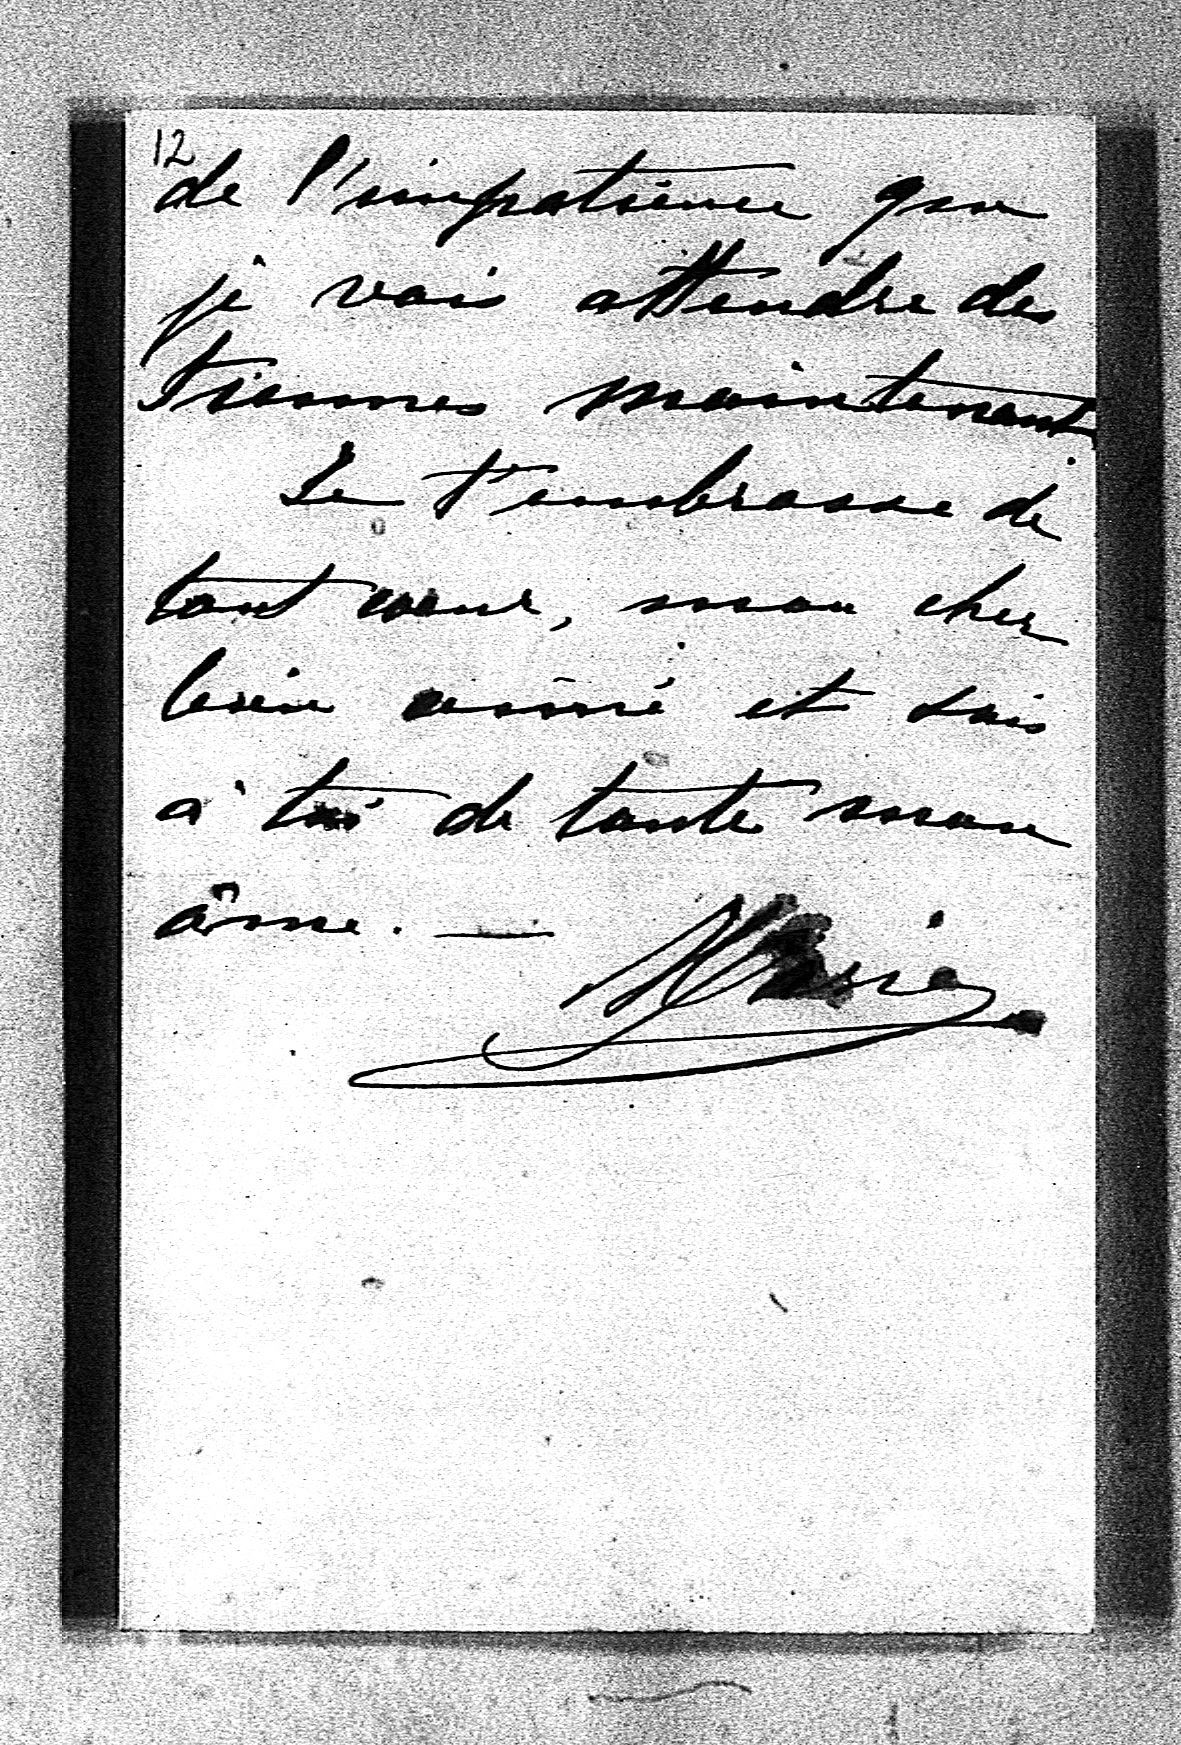 12
de l'impatience que
je vais attendre des
tiennes maintenant.
Je t'embrasse de
tout coeur, mon cher
bien aimé et suis
à toi de toute mon
âme. —
Marie